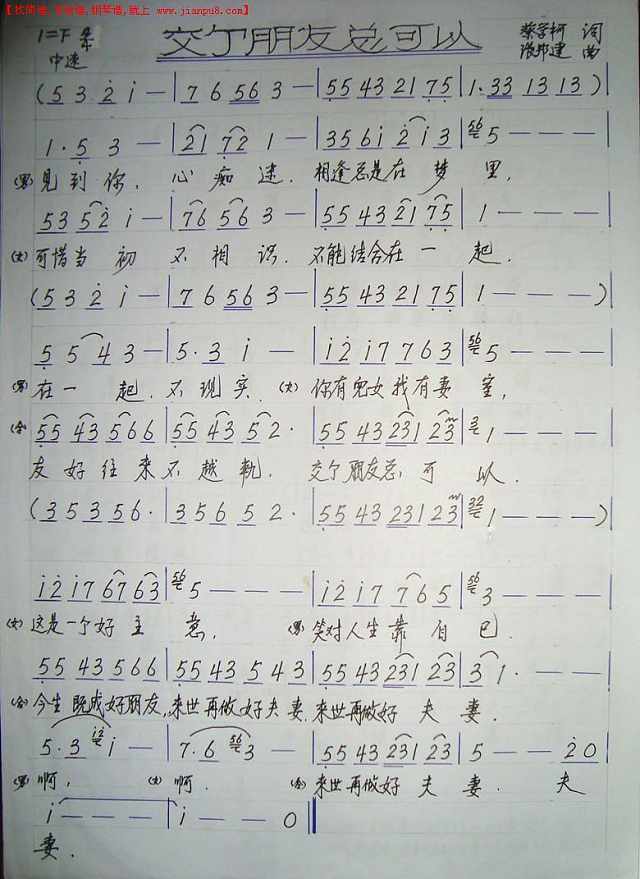 【找简谱,吉他谱,钢琴谱,就上 www.jianpu8.com】
交了朋友总可以
1=F 4/4
中速
词
曲
(5 3 2 i — | 7 6 56 3 — | 55 43 21 75 | 1·33 13 13)
1·5 3 — | 21 72 1 — | 35 6i 2 i 3 | 5 — — —
(男)见到你,心痴迷.相逢总是在梦里,
53 52 i — | 76 56 3 — | 55 43 21 75 | 1 — — —
(女)可惜当初不相识.不能结合在一起.
(5 3 2 i — | 7 6 56 3 — | 55 43 21 75 | 1 — — —)
5 5 4 3 — | 5·3 i — | i2 i7 7 63 | 5 — — —
(男)在一起.不现实.(女)你有儿女我有妻室,
(合)55 43 566 | 55 43 5 2· | 55 43 231 23 | 1 — — —
友好往来不越轨.交了朋友总可以.
(35 35 6· | 35 6 5 2· | 55 43 231 23 | 1 — — —)
i2 i7 67 63 | 5 — — — | i2 i7 7 65 | 3 — — —
(女)这是一个好主意,(男)笑对人生靠自己.
55 43 566 | 55 43 5 43 | 55 43 231 23 | 3 1· — —
(合)今生既成好朋友,来世再做好夫妻.来世再做好夫妻.
5·3 i — | 7·6 3 — | 55 43 231 23 | 5 — — 20
(男)啊,(女)啊.(合)来世再做好夫妻.夫
i — — — | i — — 0
妻.